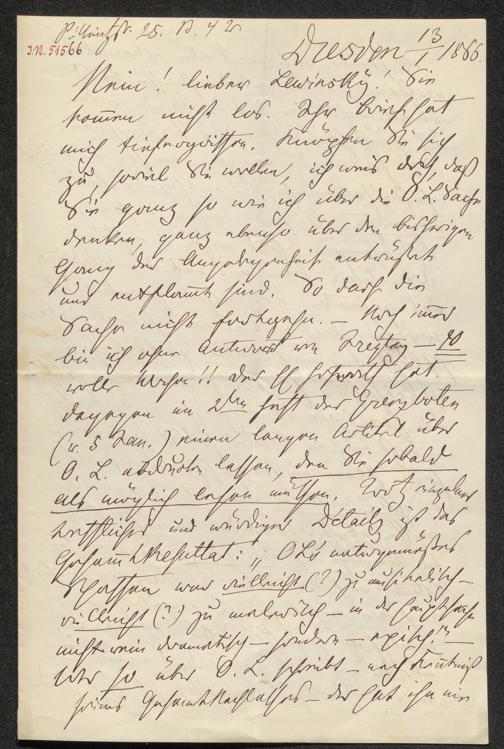 25. B. 4
I.N. 51566
Dresden 13/1 1866.
Nein! lieber Lewinsky! Sie
kommen nicht los. Ihr Brief hat
mich tiefergriffen. Knöpfen Sie sich
zu, soviel Sie wollen, ich weis doch, daß
Sie ganz so wie ich über die O. L. Sache
denken, ganz ebenso über den bisherigen
Gang der Angelegenheit entrüstet
und entflammt sind. So darf die
Sache nicht fortgehn. – Noch immer
bin ich ohne Antwort von Freytag – 10
volle Wochen!! Der hat
dagegen im 2ten Heft der Grenzboten
(v. 5 Jan.) einen langen Artikel über
O. L. abdrucken lassen, den Sie sobald
als möglich lesen müssen. Trotz einzelner
trefflicher und würdiger Details ist das
Gesammtresultat: „OL's naturgemäßes
Schaffen war vielleicht (?) zu musikalisch –
vielleicht (?) zu malerisch – in der Hauptsache
nicht rein dramatisch – sondern – episch!" –
Wer so über O. L. schreibt – nach Kenntniß
seines Gesammtnachlasses – der hat ihn nie